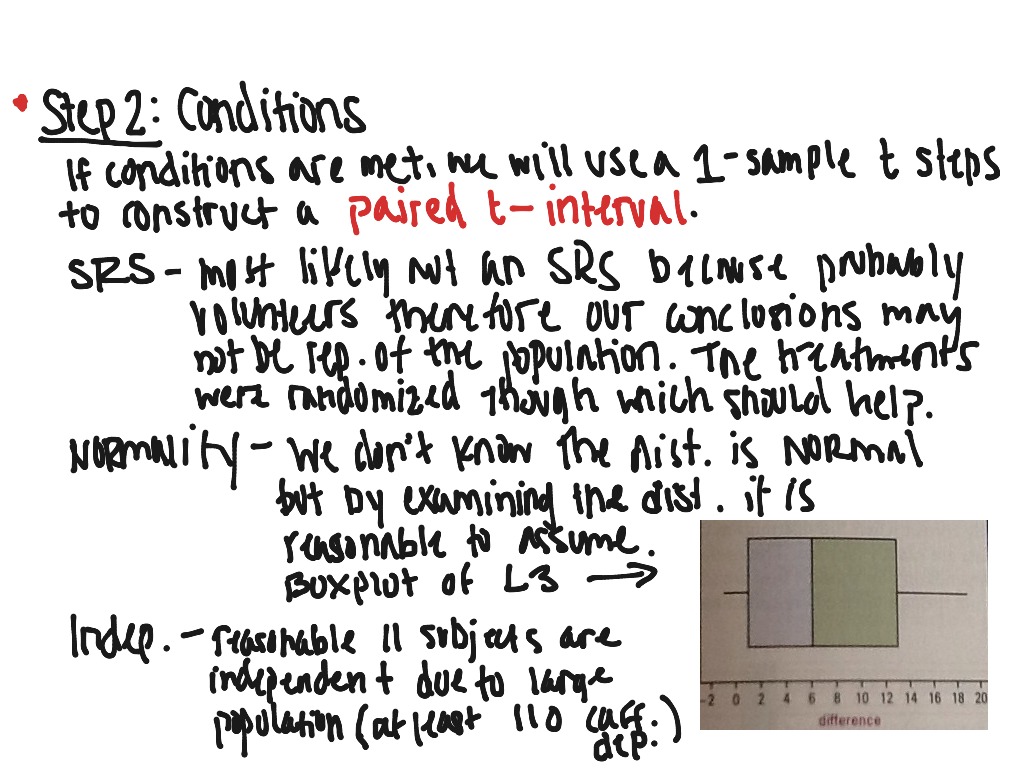 Step 2: Conditions
If conditions are met, we will use a 1-sample t steps
to construct a paired t-interval.
SRS - most likely not an SRS because probably
volunteers therefore our conclusions may
not be rep. of the population. The treatments
were randomized though which should help.
NORMALITY - We don't know the dist. is NORMAL
but by examining the dist. it is
reasonable to assume.
Boxplot of L3 →
Indep. - reasonable 11 subjects are
independent due to large
population (at least 110 caff.
dep.)
-2 0 2 4 6 8 10 12 14 16 18 20
difference